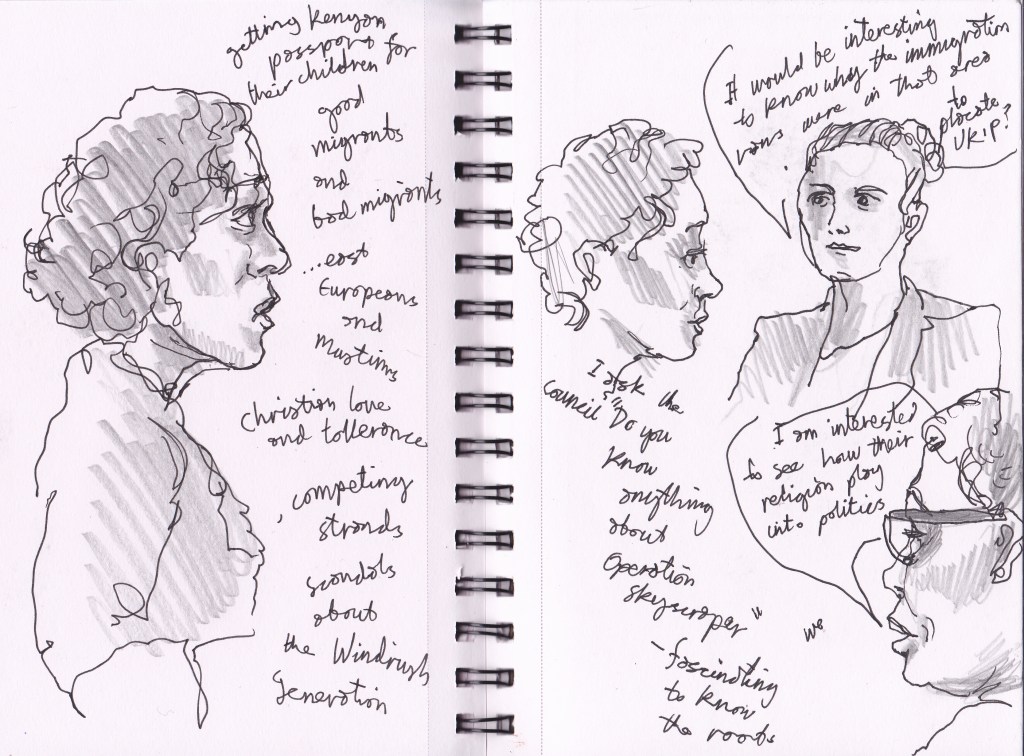 getting Kenyan
passport for
their children
good
migrants
and
bad migrants
...east
Europeans
and
Muslims
Christian love
and tollerance
, competing
strands
scandals
about
the Windrush
Generation
It would be interesting
to know why the immigration
vans were in that area
to
placate
UKIP?
I ask the
council "Do you
know
anything
about
Operation
skyscraper"
- fascinating
to know
the roots
I am interested
to see how their
religion play
into politics
we